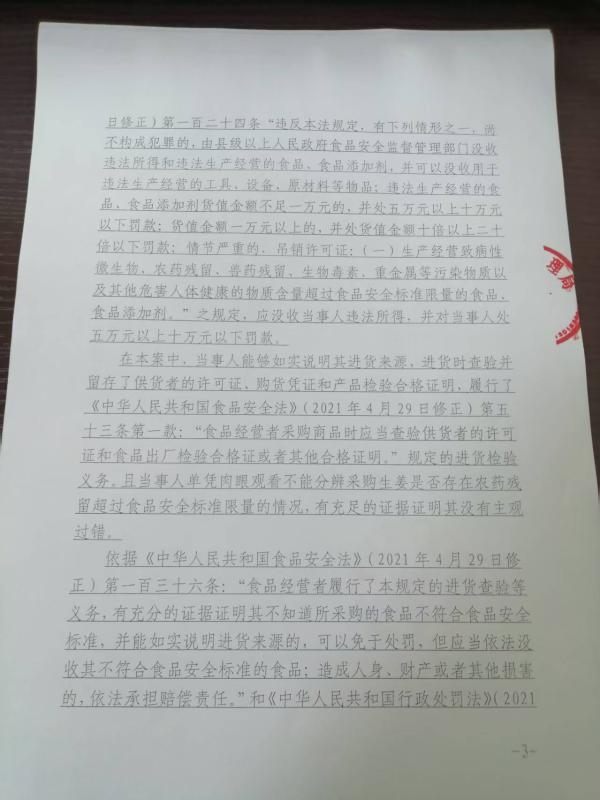 日修正）第一百二十四条“违反本法规定，有下列情形之一，尚
不构成犯罪的，由县级以上人民政府食品安全监督管理部门没收
违法所得和违法生产经营的食品、食品添加剂，并可以没收用于
违法生产经营的工具、设备、原材料等物品；违法生产经营的食
品、食品添加剂货值金额不足一万元的，并处五万元以上十万元
以下罚款；货值金额一万元以上的，并处货值金额十倍以上二十
倍以下罚款；情节严重的，吊销许可证：（一）生产经营致病性
微生物、农药残留、兽药残留、生物毒素、重金属等污染物质以
及其他危害人体健康的物质含量超过食品安全标准限量的食品、
食品添加剂。”之规定，应没收当事人违法所得，并对当事人处
五万元以上十万元以下罚款。
在本案中，当事人能够如实说明其进货来源，进货时查验并
留存了供货者的许可证、购货凭证和产品检验合格证明，履行了
《中华人民共和国食品安全法》（2021年4月29日修正）第五
十三条第一款：“食品经营者采购商品时应当查验供货者的许可
证和食品出厂检验合格证或者其他合格证明。”规定的进货检验
义务。且当事人单凭肉眼观看不能分辨采购生姜是否存在农药残
留超过食品安全标准限量的情况，有充足的证据证明其没有主观
过错。
依据《中华人民共和国食品安全法》（2021年4月29日修
正）第一百三十六条：“食品经营者履行了本规定的进货查验等
义务，有充分的证据证明其不知道所采购的食品不符合食品安全
标准，并能如实说明进货来源的，可以免于处罚，但应当依法没
收其不符合食品安全标准的食品；造成人身、财产或者其他损害
的，依法承担赔偿责任。”和《中华人民共和国行政处罚法》（2021
理局
-3-